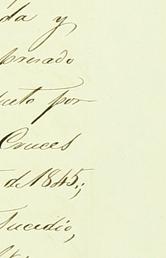 da y
presado
ucto por
Cruces
de 1845;
sucedio,